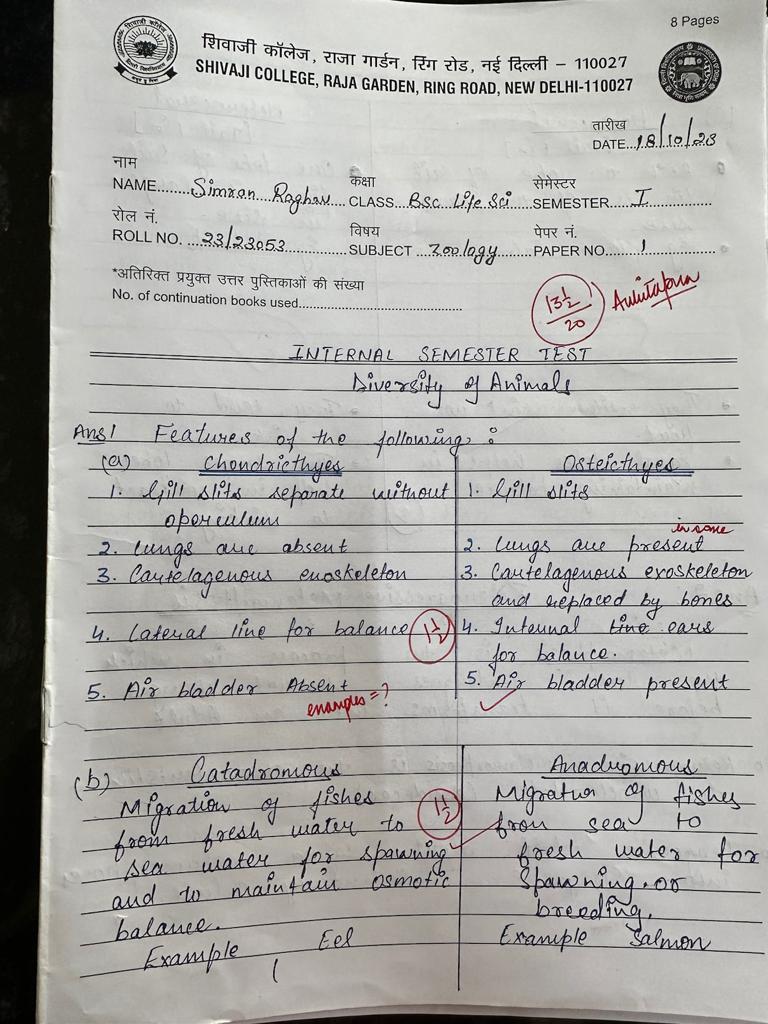 8 Pages
शिवाजी कॉलेज, राजा गार्डन, रिंग रोड, नई दिल्ली – 110027
SHIVAJI COLLEGE, RAJA GARDEN, RING ROAD, NEW DELHI-110027
तारीख
DATE...18/10/23
नाम कक्षा सेमेस्टर
NAME......Simran Raghav....CLASS...BSc Life Sci SEMESTER....I
रोल नं. विषय पेपर नं.
ROLL NO. 23/23053 SUBJECT Zoology PAPER NO. 1
*अतिरिक्त प्रयुक्त उत्तर पुस्तिकाओं की संख्या
No. of continuation books used
13 1/2 / 20
INTERNAL SEMESTER TEST
Diversity of Animals
Ans1 Features of the following :
(a) Chondricthyes Osteicthyes
1. Gill slits separate without 1. Gill slits
operculum
in some
2. Lungs are absent 2. Lungs are present
3. Cartelagenous enoskeleton 3. Cartelagenous exoskeleton
and replaced by bones
4. Lateral line for balance 1 1/2 4. Internal line ears
for balance.
5. Air bladder Absent 5. Air bladder present
examples = ?
(b) Catadromous Anadromous
Migration of fishes 1 1/2 Migration of fishes
from fresh water to from sea to
sea water for spawning fresh water for
and to maintain osmotic Spawning or
balance. breeding.
Example Eel Example Salmon